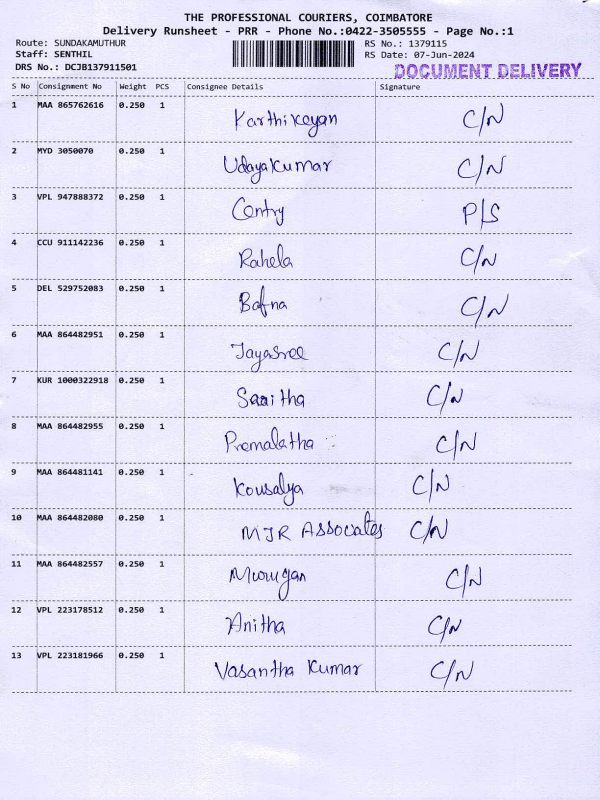 THE PROFESSIONAL COURIERS, COIMBATORE
Delivery Runsheet - PRR - Phone No.:0422-3505555 - Page No.:1
Route: SUNDAKAMUTHUR RS No.: 1379115
Staff: SENTHIL RS Date: 07-Jun-2024
DRS No.: DCJB137911501 DOCUMENT DELIVERY
S No Consignment No Weight PCS Consignee Details Signature
1 MAA 865762616 0.250 1 Karthikeyan C/N
2 MYD 3050070 0.250 1 Udayakumar C/N
3 VPL 947888372 0.250 1 Centry P/S
4 CCU 911142236 0.250 1 Rahela C/N
5 DEL 529752083 0.250 1 Bafna C/N
6 MAA 864482951 0.250 1 Jayasree C/N
7 KUR 1000322918 0.250 1 Saritha C/N
8 MAA 864482955 0.250 1 Premalatha C/N
9 MAA 864481141 0.250 1 Kousalya C/N
10 MAA 864482080 0.250 1 MJR ASSOCiates C/N
11 MAA 864482557 0.250 1 Murugan C/N
12 VPL 223178512 0.250 1 Anitha C/N
13 VPL 223181966 0.250 1 Vasantha Kumar C/N